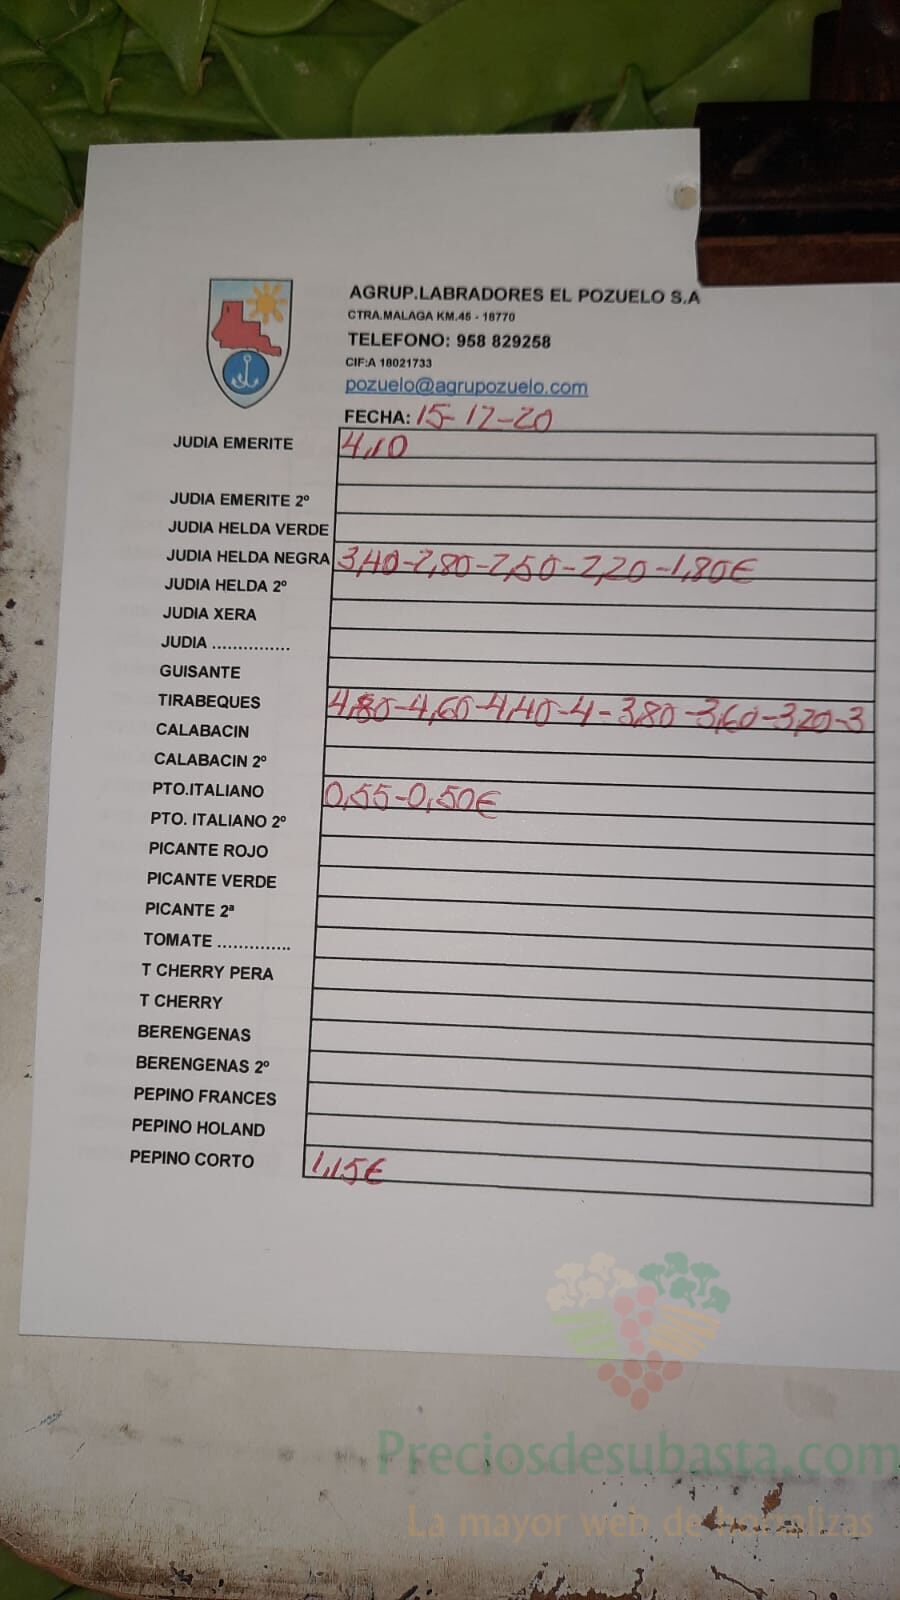 AGRUP.LABRADORES EL POZUELO S.A
CTRA.MALAGA KM.45 - 18770
TELEFONO: 958 829258
CIF:A 18021733
pozuelo@agrupozuelo.com
FECHA: 15-12-20
JUDIA EMERITE 4,10
JUDIA EMERITE 2º
JUDIA HELDA VERDE
JUDIA HELDA NEGRA 3,40-2,80-2,50-2,20-1,80€
JUDIA HELDA 2º
JUDIA XERA
JUDIA ...............
GUISANTE
TIRABEQUES 4,80-4,60-4,40-4-3,80-3,60-3,20-3
CALABACIN
CALABACIN 2º
PTO.ITALIANO 0,55-0,50€
PTO. ITALIANO 2º
PICANTE ROJO
PICANTE VERDE
PICANTE 2ª
TOMATE ..............
T CHERRY PERA
T CHERRY
BERENGENAS
BERENGENAS 2º
PEPINO FRANCES
PEPINO HOLAND
PEPINO CORTO 1,15€
Preciosdesubasta.com
La mayor web de hortalizas